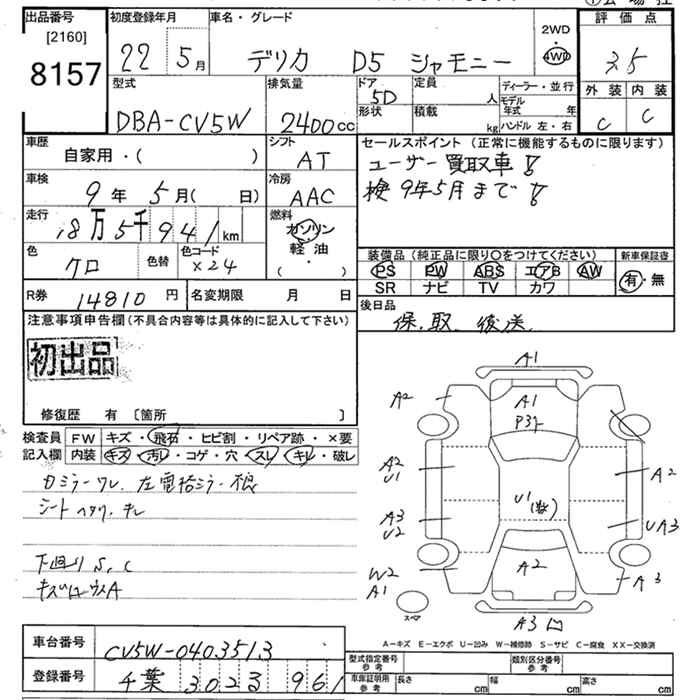 出品番号
[2160]
8157
初度登録年月
22 5月
車名・グレード
デリカ D5 シャモニー
2WD
・
4WD
評価点
3.5
外装 内装
C C
型式
DBA-CV5W
排気量
2400cc
ドア
5D
形状
定員
人
積載
kg
ディーラー・並行
モデル
年式 年
ハンドル 左・右
車歴
自家用・( )
シフト
AT
セールスポイント (正常に機能するものに限ります)
ユーザー買取車!
検9年5月まで!
車検
9年 5月( 日)
冷房
AAC
走行
18万5千941km
燃料
ガソリン
軽油
( ・ )
色
クロ
色替
色コード
X24
装備品 (純正品に限り○をつけてください)
PS PW ABS エアB AW
SR ナビ TV カワ
新車保証書
有・無
R券 14810円
名変期限 月 日
後日品
保、取、後送
注意事項申告欄(不具合内容等は具体的に記入して下さい)
初出品
修復歴 有 〔箇所 〕
検査員
記入欄
FW キズ・飛石・ヒビ割・リペア跡・×要
内装 キズ・汚レ・コゲ・穴・スレ・キレ・破レ
シートヘタリ、キレ
下回りS、C
A1
A2
A1
A2
U1
A2
A3
U2
UA3
W2
A1
A2
A3
A3
スペア
A-キズ E-エクボ U-凹み W-補修跡 S-サビ C-腐食 XX-交換済
車台番号
CV5W-0403513
登録番号
千葉 302 3 961
型式指定番号
参考
類別区分番号
参考
車庫証明用
参考
長さ cm
幅 cm
高さ cm